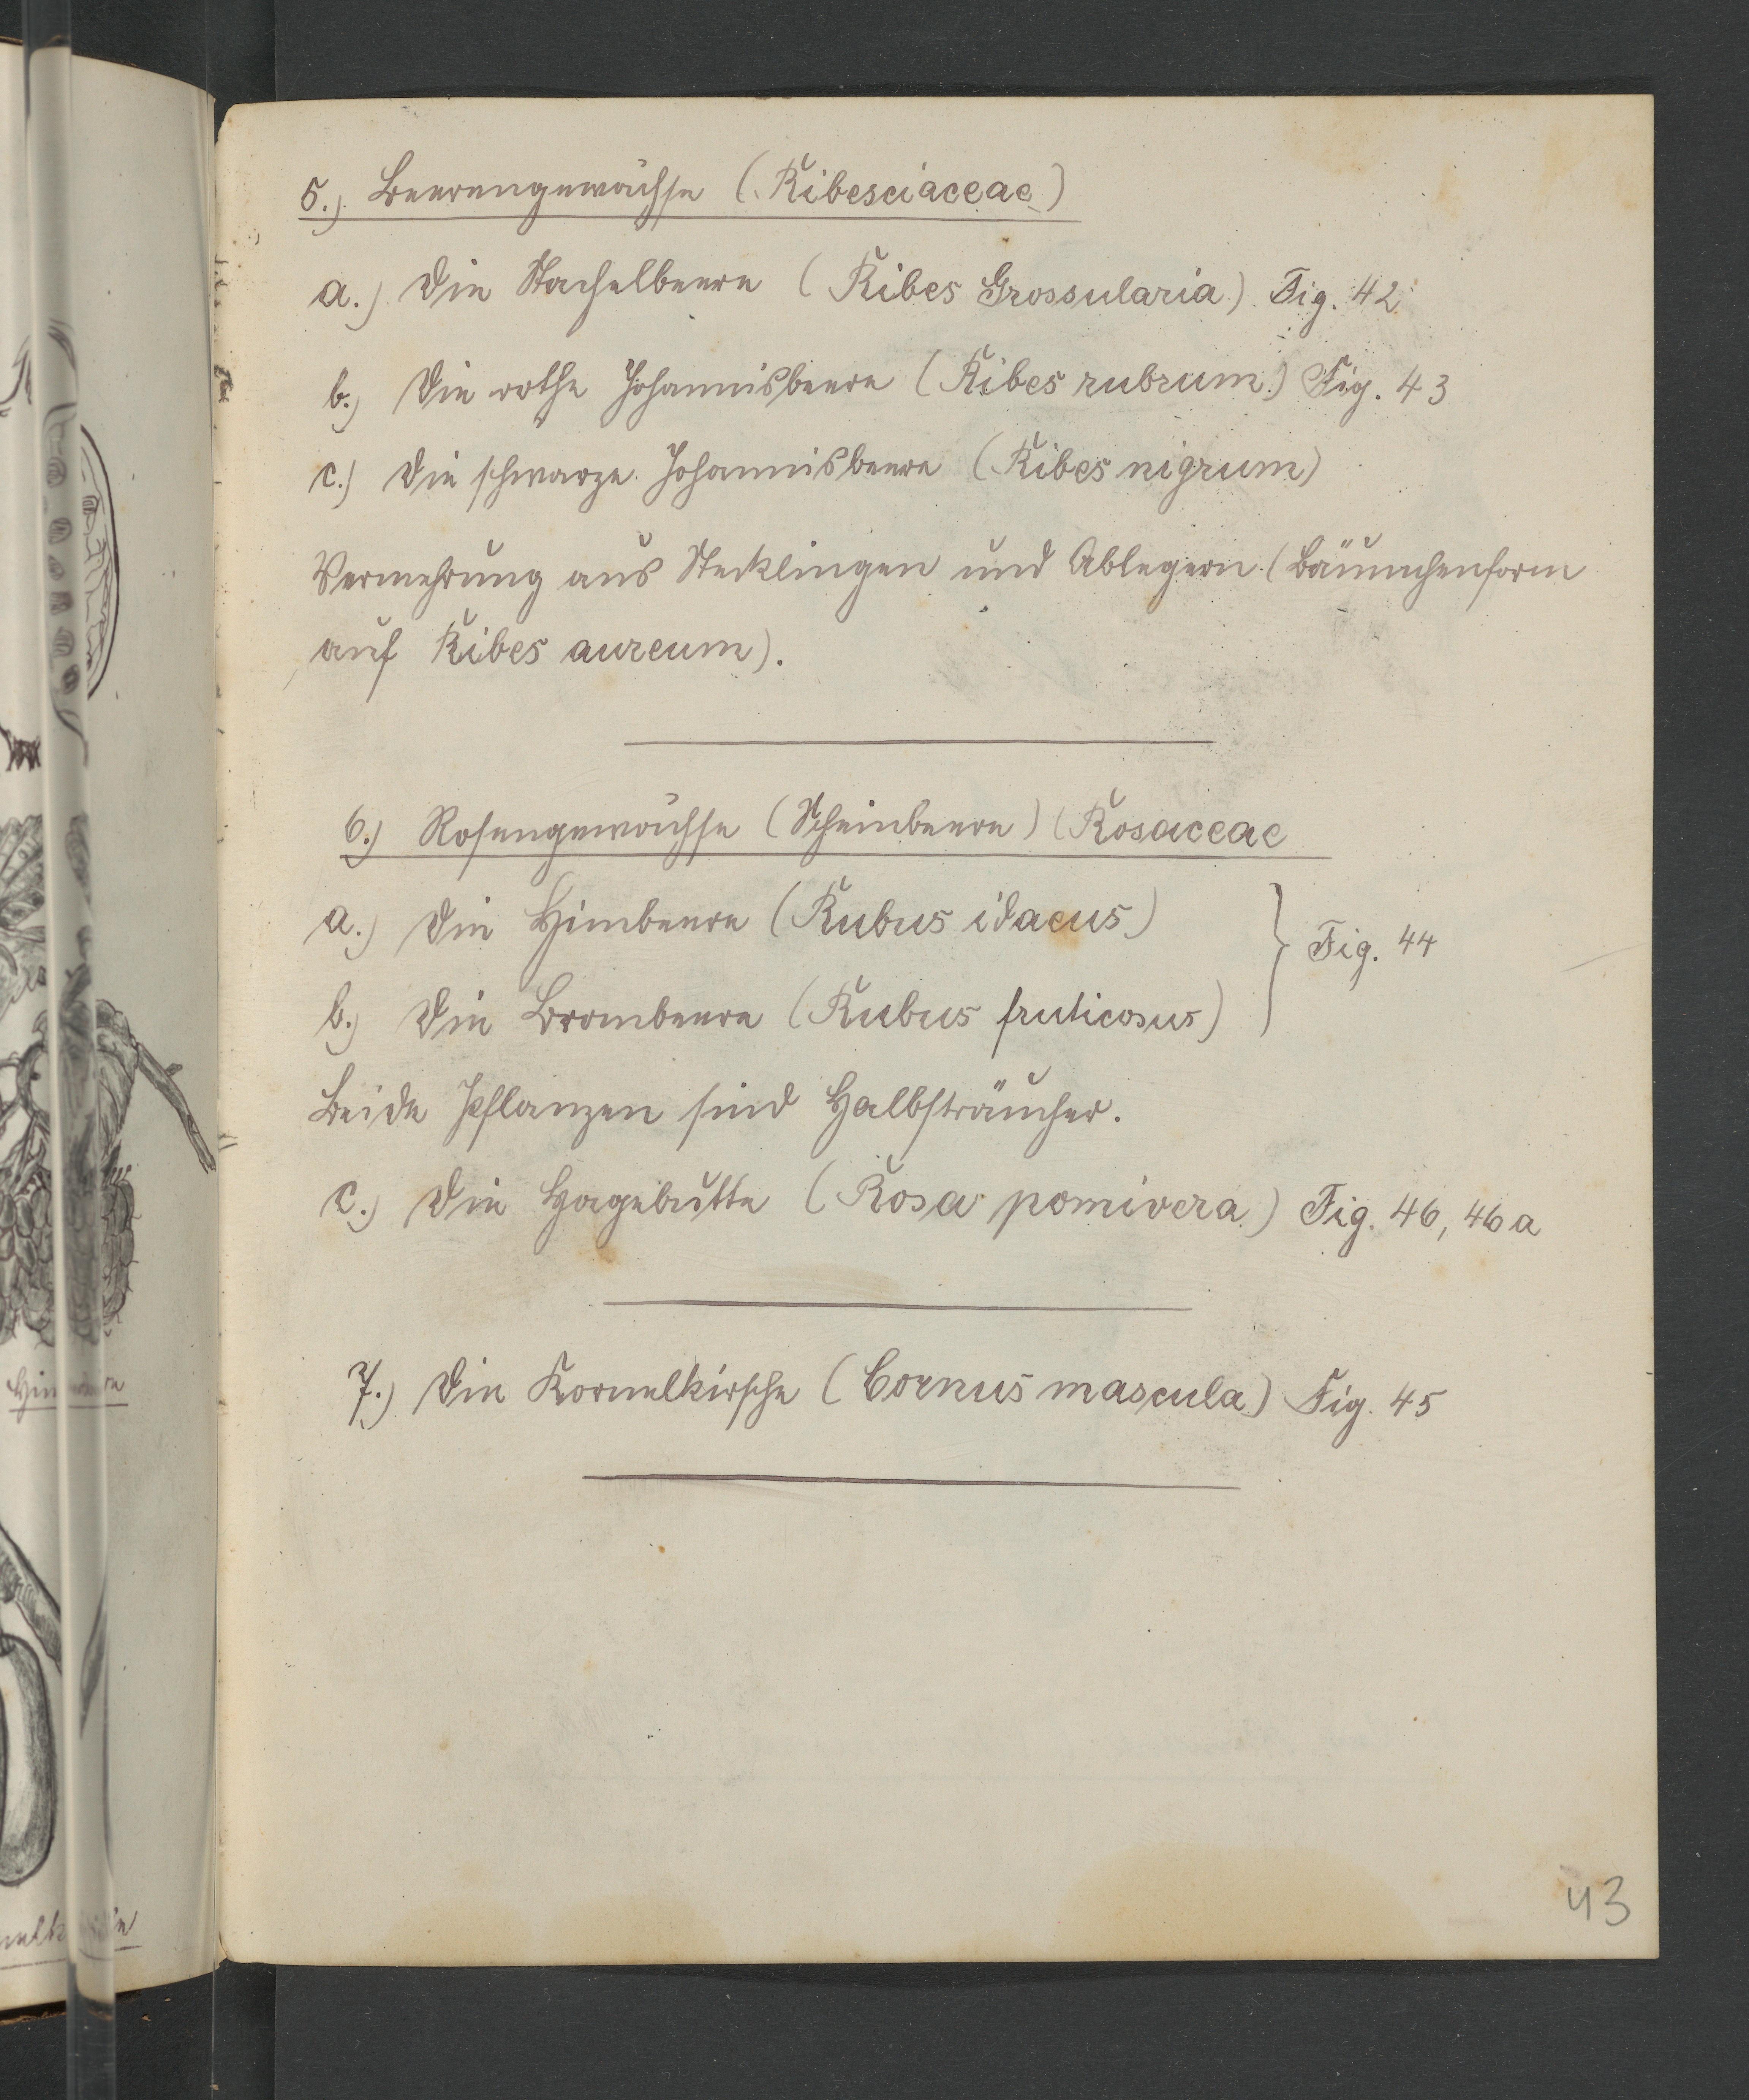 5.) Beerengewächse (Ribesciaceae)
a.) Die Stachelbeere (Ribes Grossularia) Fig. 42
b.) Die rothe Johannisbeere (Ribes rubrum) Fig. 43
c.) Die schwarze Johannisbeere (Ribes nigrum)
Vermehrung aus Stecklingen und Ablegern (Bäumchenform
auf Ribes aureum).
6.) Rosengewächse (Scheinbeere) (Rosaceae
a.) Die Himbeere (Rubus idaeus)
Fig. 44
b.) Die Brombeere (Rubus fruticosus)
Beide Pflanzen sind Halbsträucher.
c.) Die Hagebutte (Rosa pomivera) Fig. 46, 46 a
7.) Die Kornelkirsche (Cornus mascula) Fig. 45
43